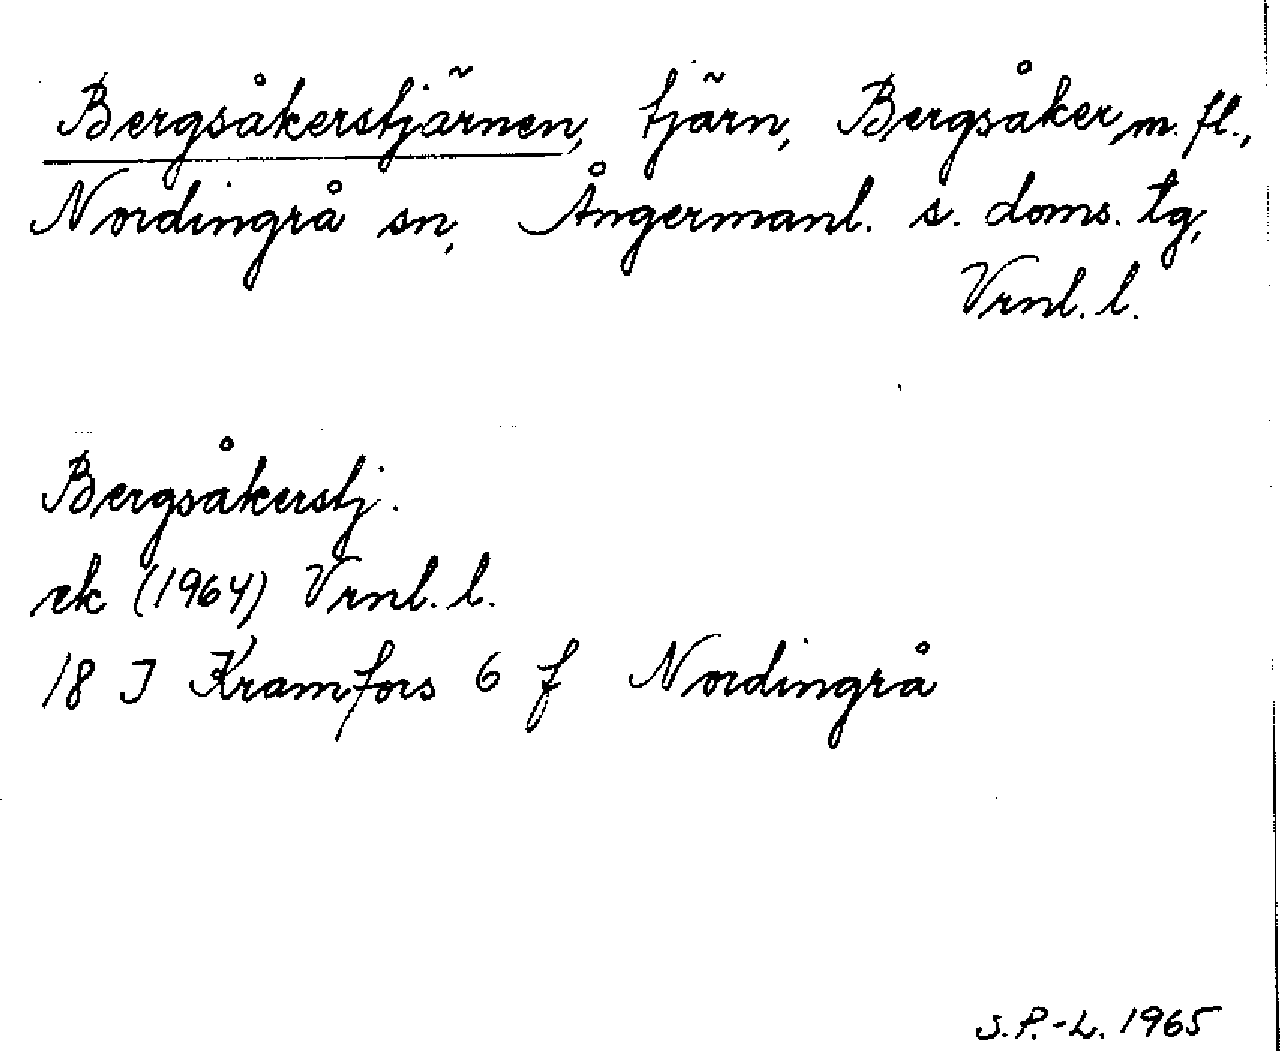 Bergsåkerstjärnen, tjärn, Bergsåker m. fl.,
Nordingrå sn, Ångermanl. s. doms. tg,
Vrnl. l.
Bergsåkerstj.
ek (1964) Vrnl. l.
18 J Kramfors 6 f Nordingrå
S.P.-L. 1965